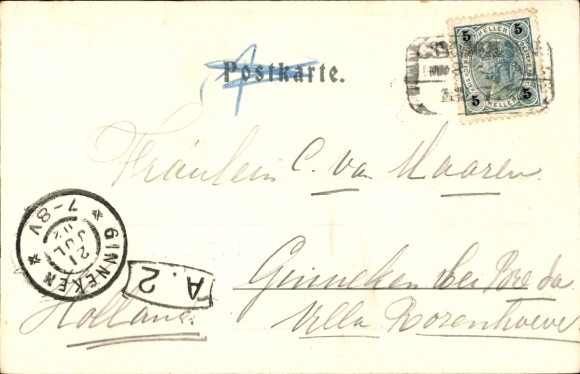 5 HELLER 5
5 HELLER 5
Postkarte.
Fräulein C. van Maaren
GINNEKEN
21 JUL 02
7-8V
A.2
Ginneken bei Breda
Holland.
Villa Rozenhoeve